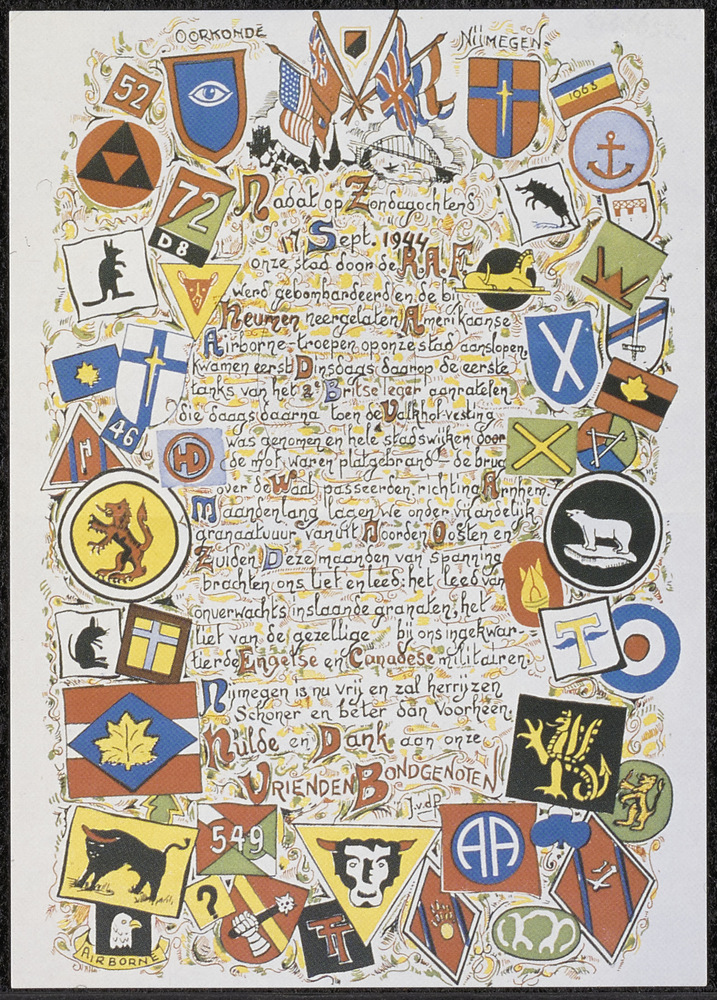 OORKONDE
NIJMEGEN
52
1063
72
D8
Nadat op Zondagochtend
17 Sept. 1944
onze stad door de R.A.F.
werd gebombardeerd en de bij
Heumen neergelaten Amerikaanse
Airborne-troepen op onze stad aanslopen,
kwamen eerst Dinsdags daarop de eerste
tanks van het 2e Britse leger aanratelen.
Die daags daarna toen de Valkhof-vesting
was genomen en hele stadswijken door
de mof waren platgebrand - de brug
over de Waal passeerden, richting Arnhem.
Maandenlang lagen we onder vijandelijk
granaatvuur vanuit Noorden, Oosten en
Zuiden. Deze maanden van spanning
brachten ons lief en leed: het leed van
onverwachts inslaande granaten, het
lief van de gezellige bij ons ingekwar-
tierde Engelse en Canadese militairen.
Nijmegen is nu vrij en zal herrijzen
Schoner en beter dan voorheen.
Hulde en Dank aan onze
VRIENDEN BONDGENOTEN!
J.v.dP.
46
HD
T
549
?
AA
TT
AIRBORNE